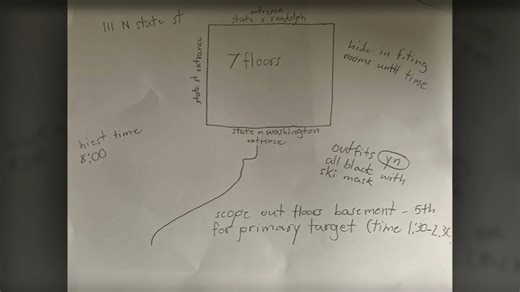 111 N state st
entrance
state n randolph
state st entrance
7 floors
hide in fiting
rooms until time
hiest time
8:00
state n washington
entrance
outfits yn
all black with
ski mask
scope out floors basement - 5th
for primary target (time 1:30-2:30